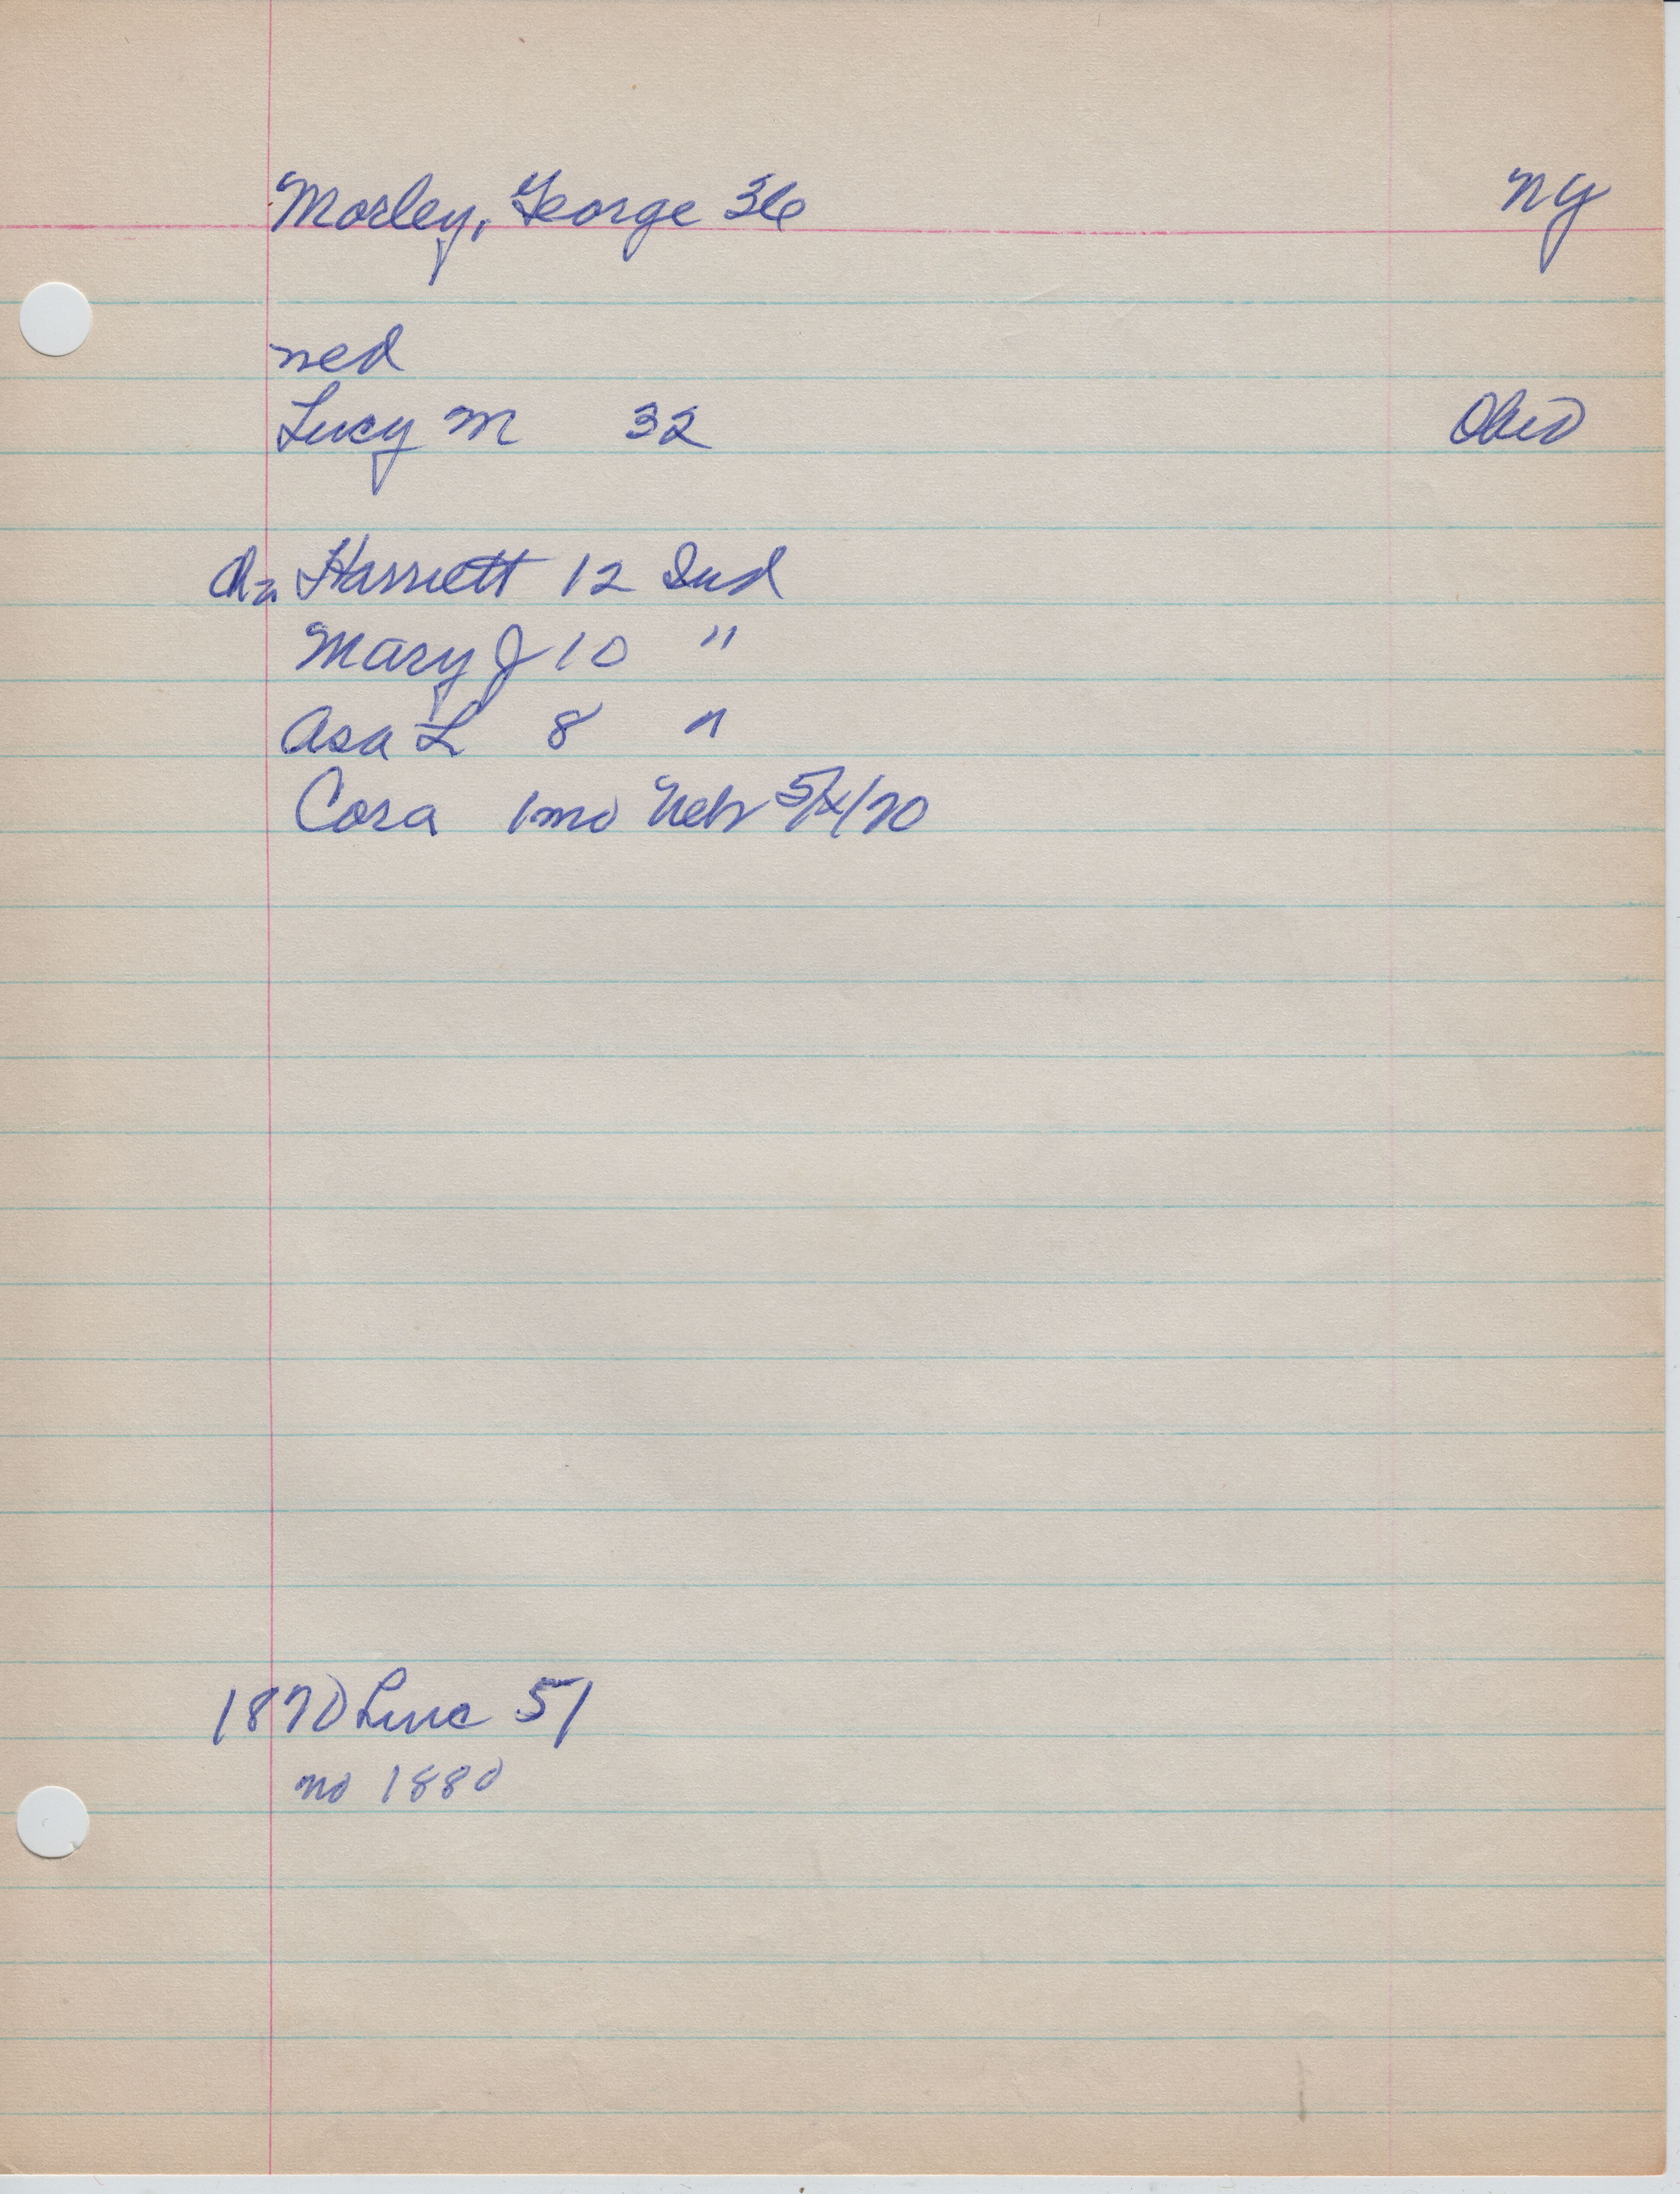 Morley, George 36 NY
med
Lucy M 32 Ohio
Ch: Harriett 12 Ind
Mary J 10 "
Asa L 8 "
Cora 1mo Neb 5/x/70
1870 Linc 51
no 1880